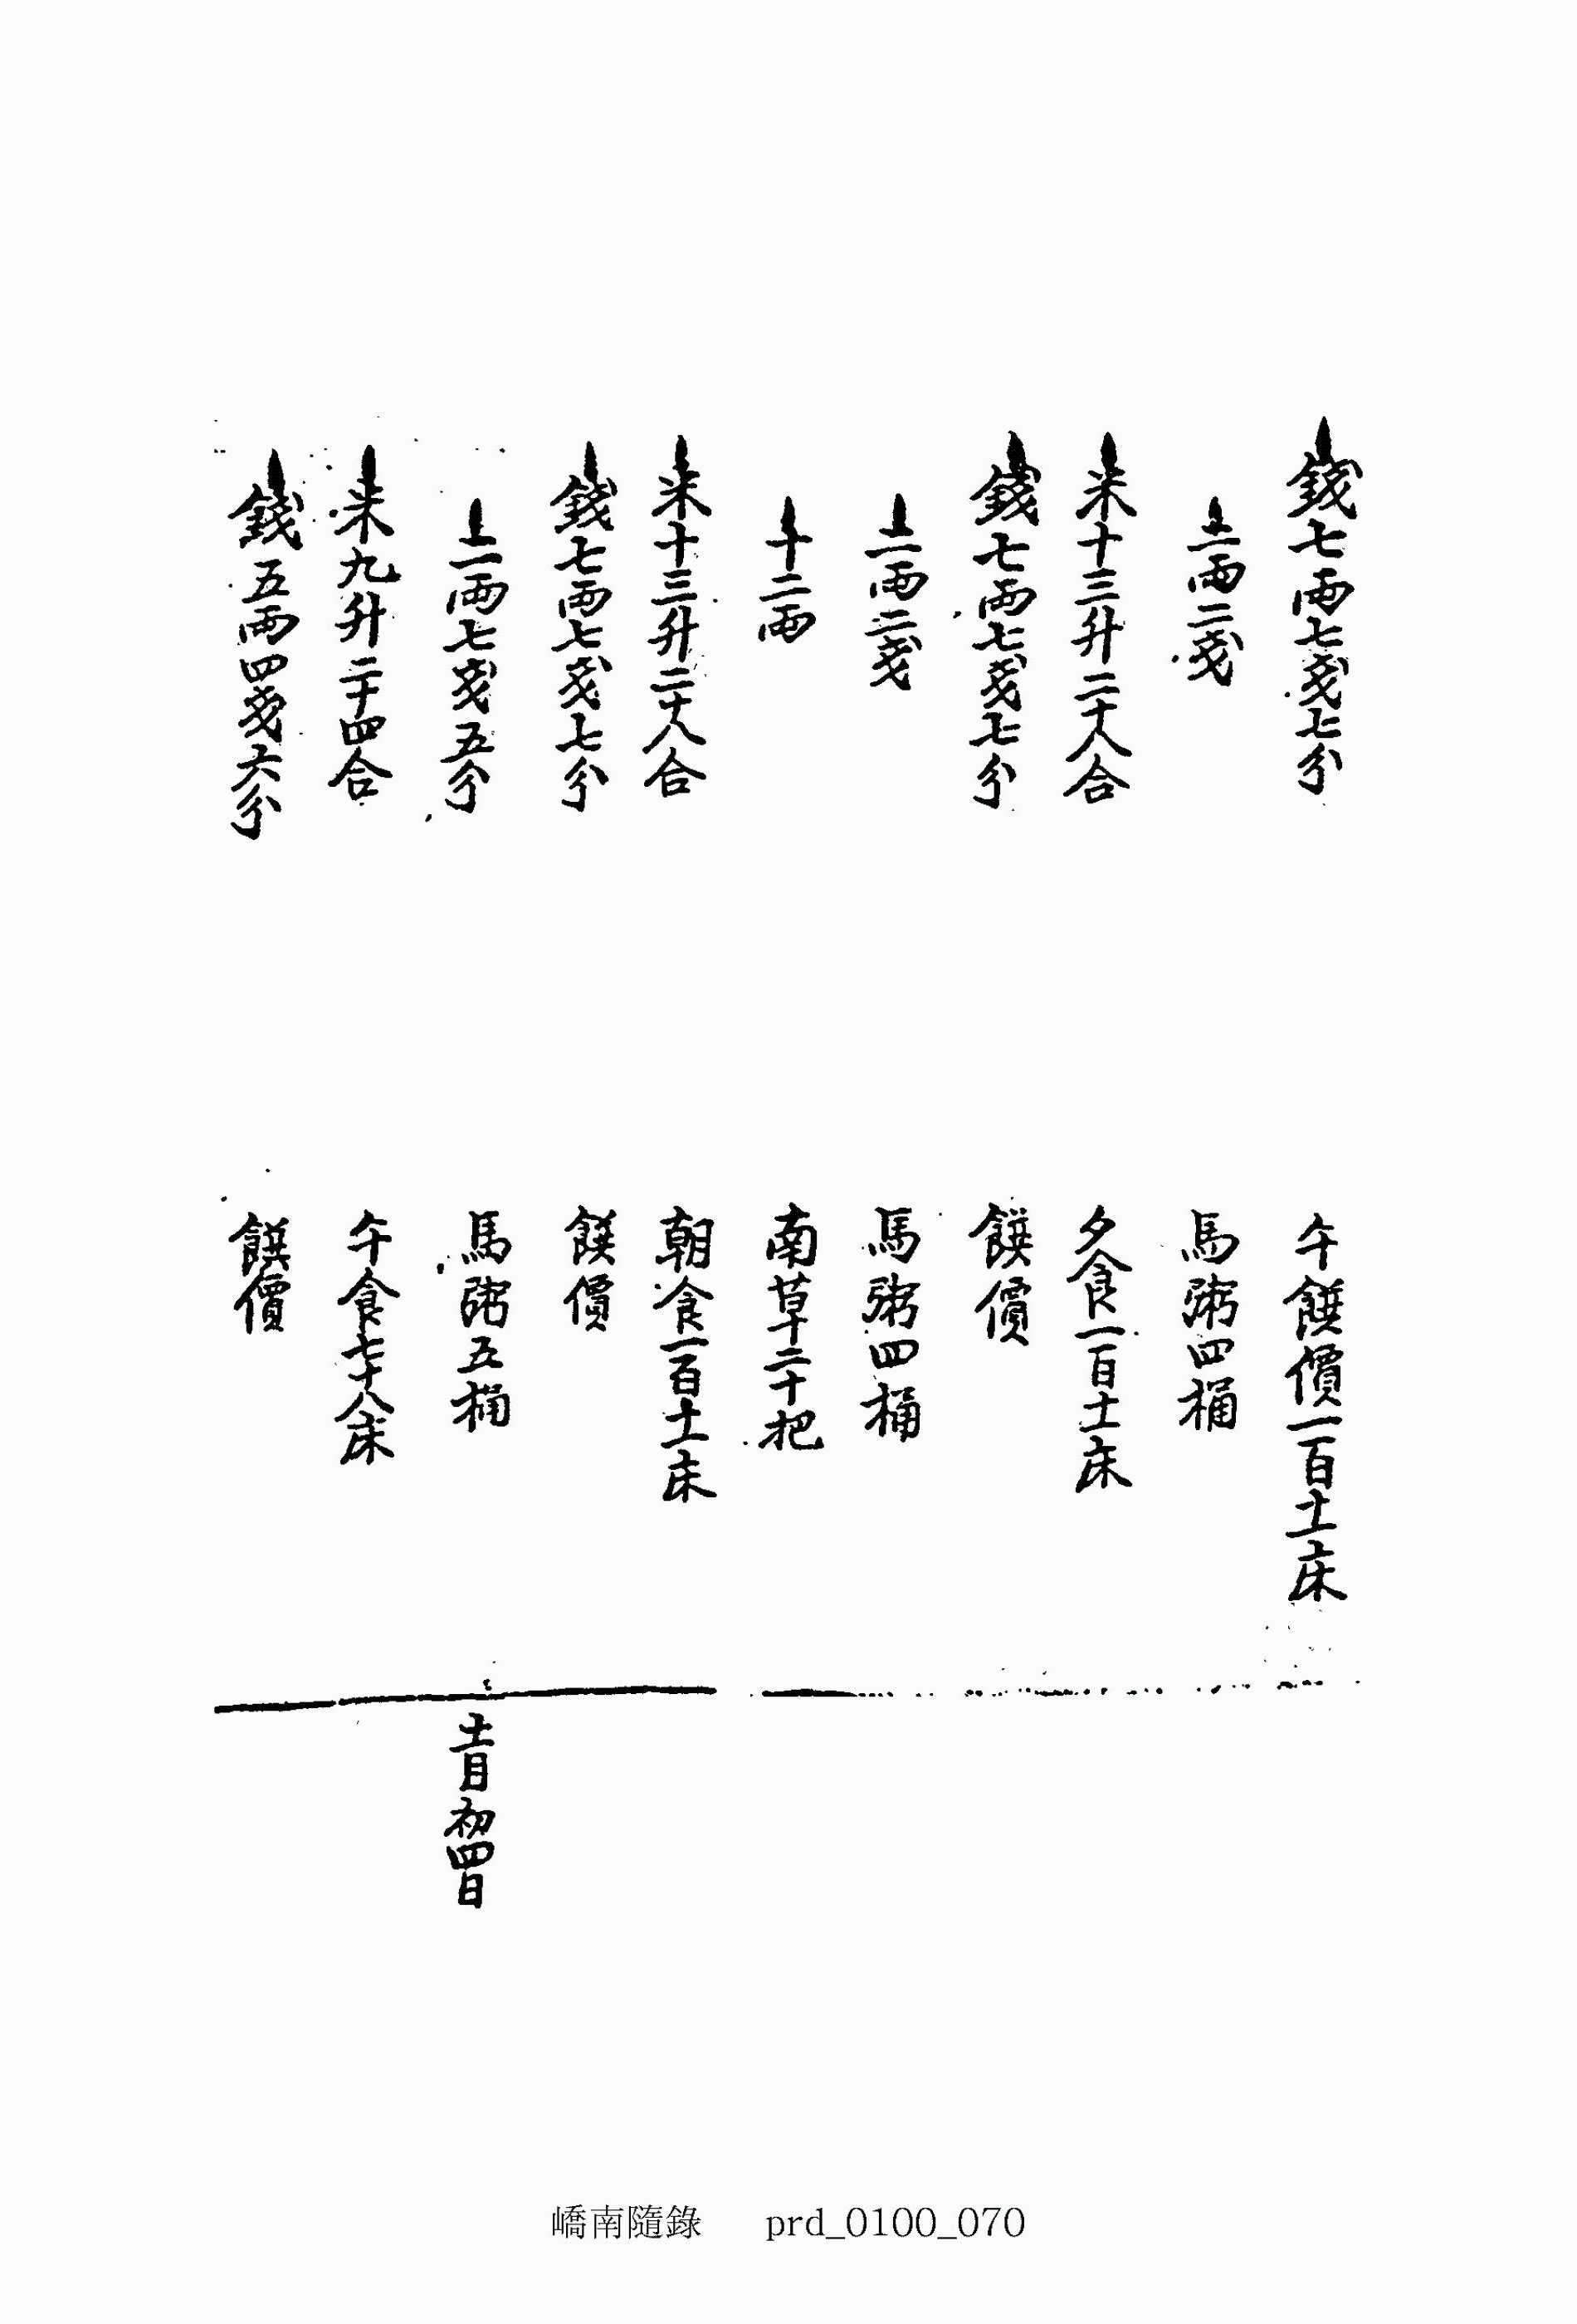 錢七両七戔七分　午饌價一百十一床
一両二戔　馬粥四桶
米十三升二十八合　夕食一百十一床
錢七両七戔七分　饌價
一両二戔　馬粥四桶
二両　南草二十把
米十三升二十八合　朝食一百十一床
錢七両七戔七分　饌價
一両七戔五分　馬粥五桶　十一月初四日
米九升二十四合　午食七十八床
錢五両四戔六分　饌價
嶠南隨錄　prd_0100_070